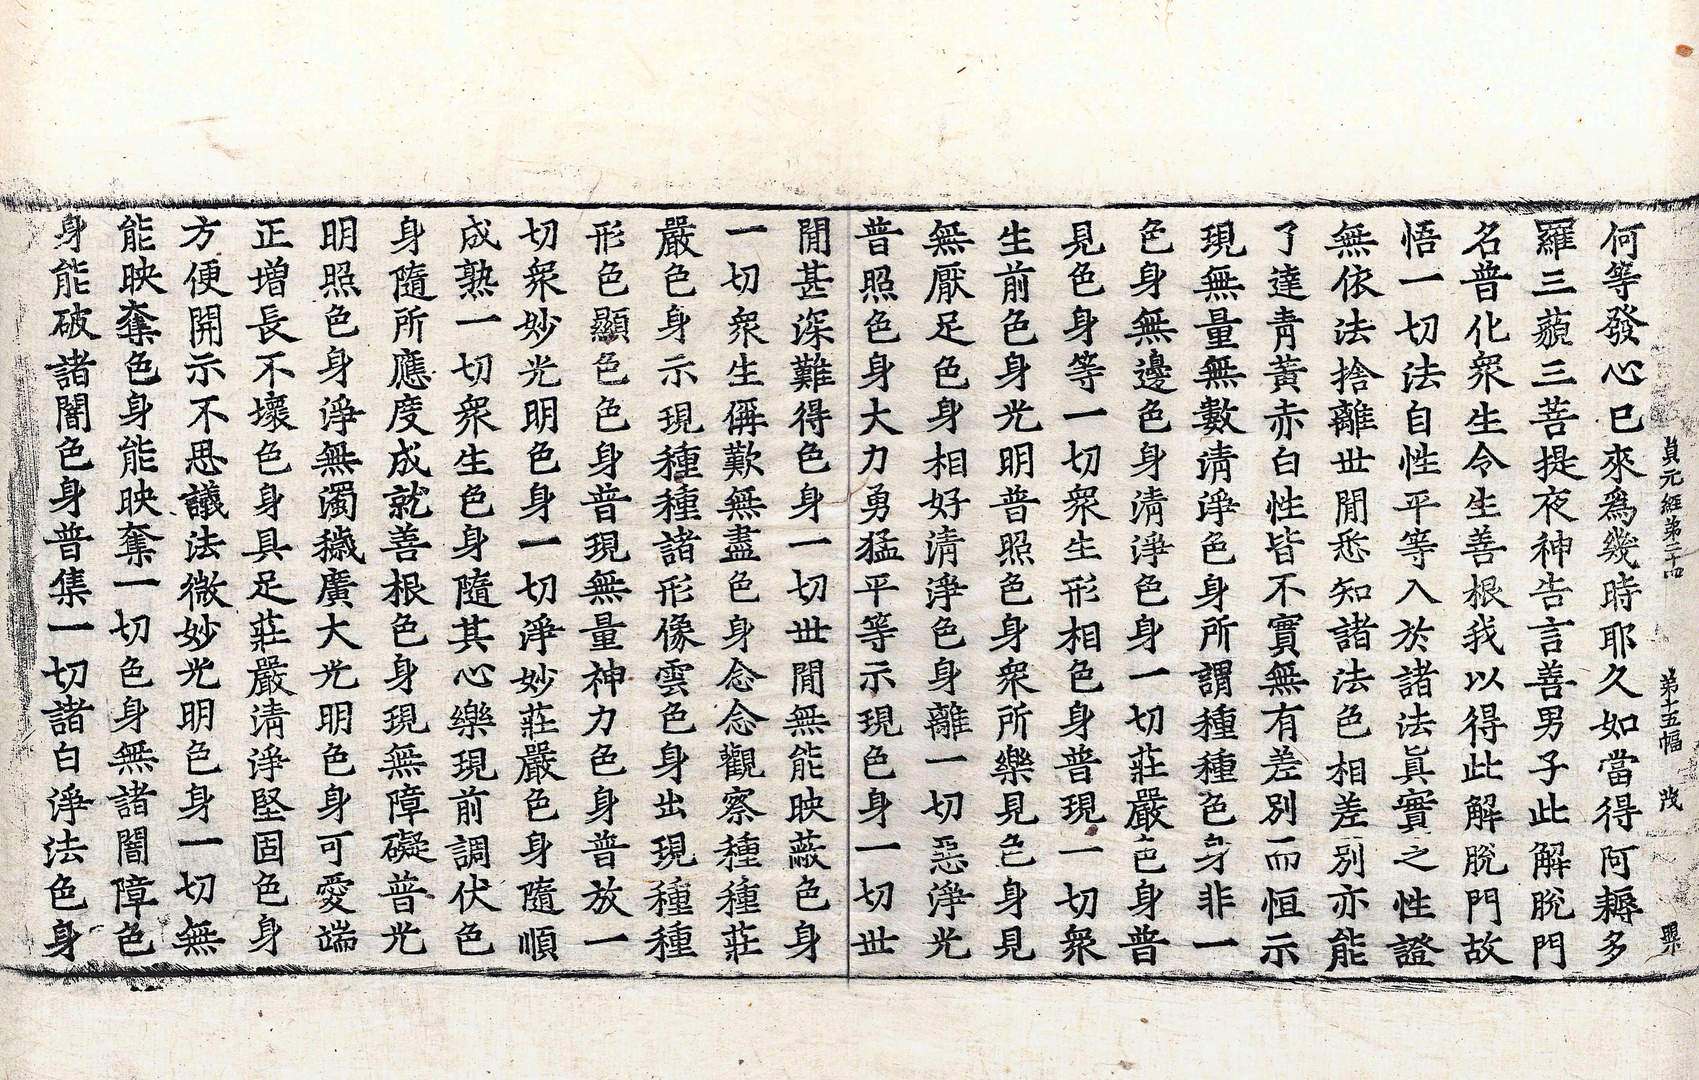 貞元經第二十四 第十五幅 茂 㒹
何等發心已來爲幾時耶久如當得阿耨多
羅三藐三菩提夜神告言善男子此解脫門
名普化衆生令生善根我以得此解脫門故
悟一切法自性平等入於諸法眞實之性證
無依法捨離世閒悉知諸法色相差別亦能
了達靑黃赤白性皆不實無有差別而恒示
現無量無數淸淨色身所謂種種色身非一
色身無邊色身淸淨色身一切莊嚴色身普
見色身等一切衆生形相色身普現一切衆
生前色身光明普照色身衆所樂見色身見
無厭足色身相好淸淨色身離一切惡淨光
普照色身大力勇猛平等示現色身一切世
閒甚深難得色身一切世閒無能映蔽色身
一切衆生稱歎無盡色身念念觀察種種莊
嚴色身示現種種諸形像雲色身出現種種
形色顯色色身普現無量神力色身普放一
切衆妙光明色身一切淨妙莊嚴色身隨順
成熟一切衆生色身隨其心樂現前調伏色
身隨所應度成就善根色身現無障礙普光
明照色身淨無濁穢廣大光明色身可愛端
正增長不壞色身具足莊嚴淸淨堅固色身
方便開示不思議法微妙光明色身一切無
能映奪色身能映奪一切色身無諸闇障色
身能破諸闇色身普集一切諸白淨法色身